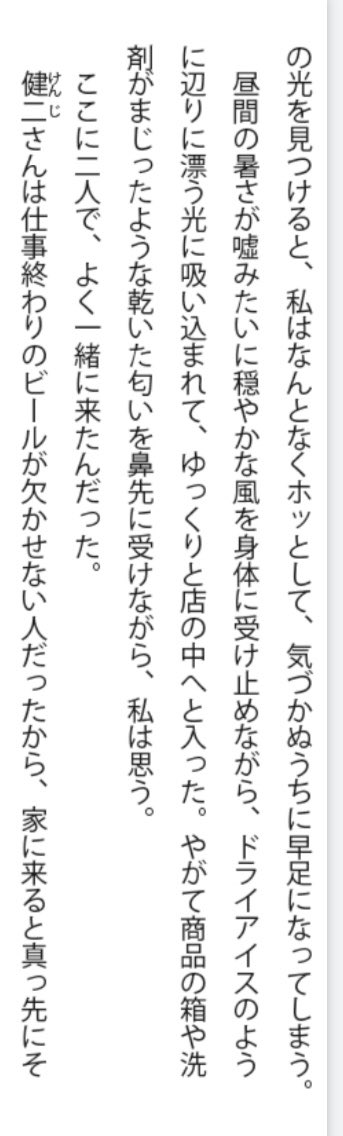 の光を見つけると、私はなんとなくホッとして、気づかぬうちに早足になってしまう。
昼間の暑さが嘘みたいに穏やかな風を身体に受け止めながら、ドライアイスのよう
に辺りに漂う光に吸い込まれて、ゆっくりと店の中へと入った。やがて商品の箱や洗
剤がまじったような乾いた匂いを鼻先に受けながら、私は思う。
ここに二人で、よく一緒に来たんだった。
健二さんは仕事終わりのビールが欠かせない人だったから、家に来ると真っ先にそ
けんじ